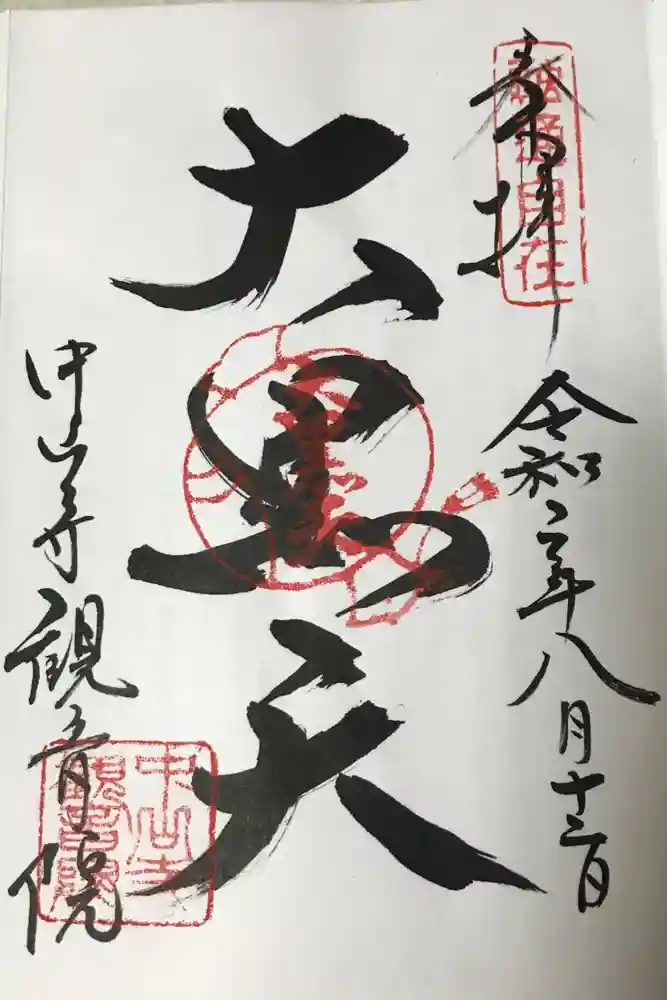 奉拝
融通自在
令和二年八月十三日
大黒天
中山寺観音院
中山寺
観音院